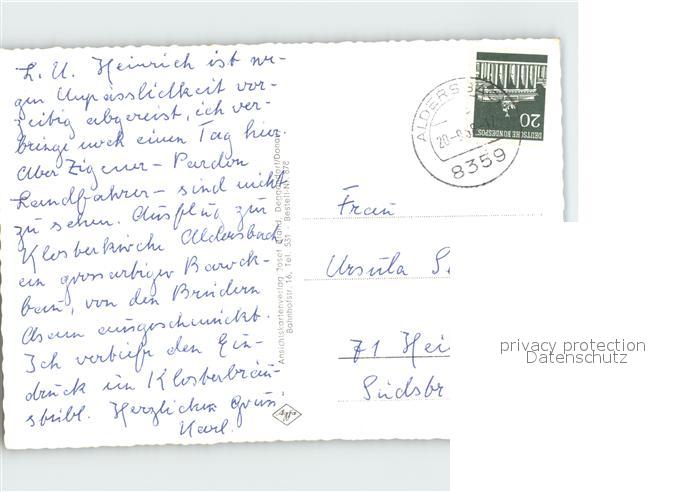 L. U. Heinrich ist we-
gen Unpässlichkeit vor-
zeitig abgereist, ich ver-
bringe noch einen Tag hier.
Aber Zigeuner - Pardon
Landfahrer - sind nicht
zu sehen. Ausflug zur
Klosterkirche Aldersbach
ein grossartiger Barock-
bau, von den Brüdern
Asam ausgeschmückt.
Ich vertiefe den Ein-
druck im Klosterbräu-
stübl. Herzlichen Gruss
Karl.
Ansichtskartenverlag Josef
Bahnhofstr. 16, Tel. 531 - Bestell-Nr. 878
Agfa
ALDERSBACH
8359
20
DEUTSCHE BUNDESPOST
Frau
Ursula
71 Hei
Südsbr
privacy protection
Datenschutz